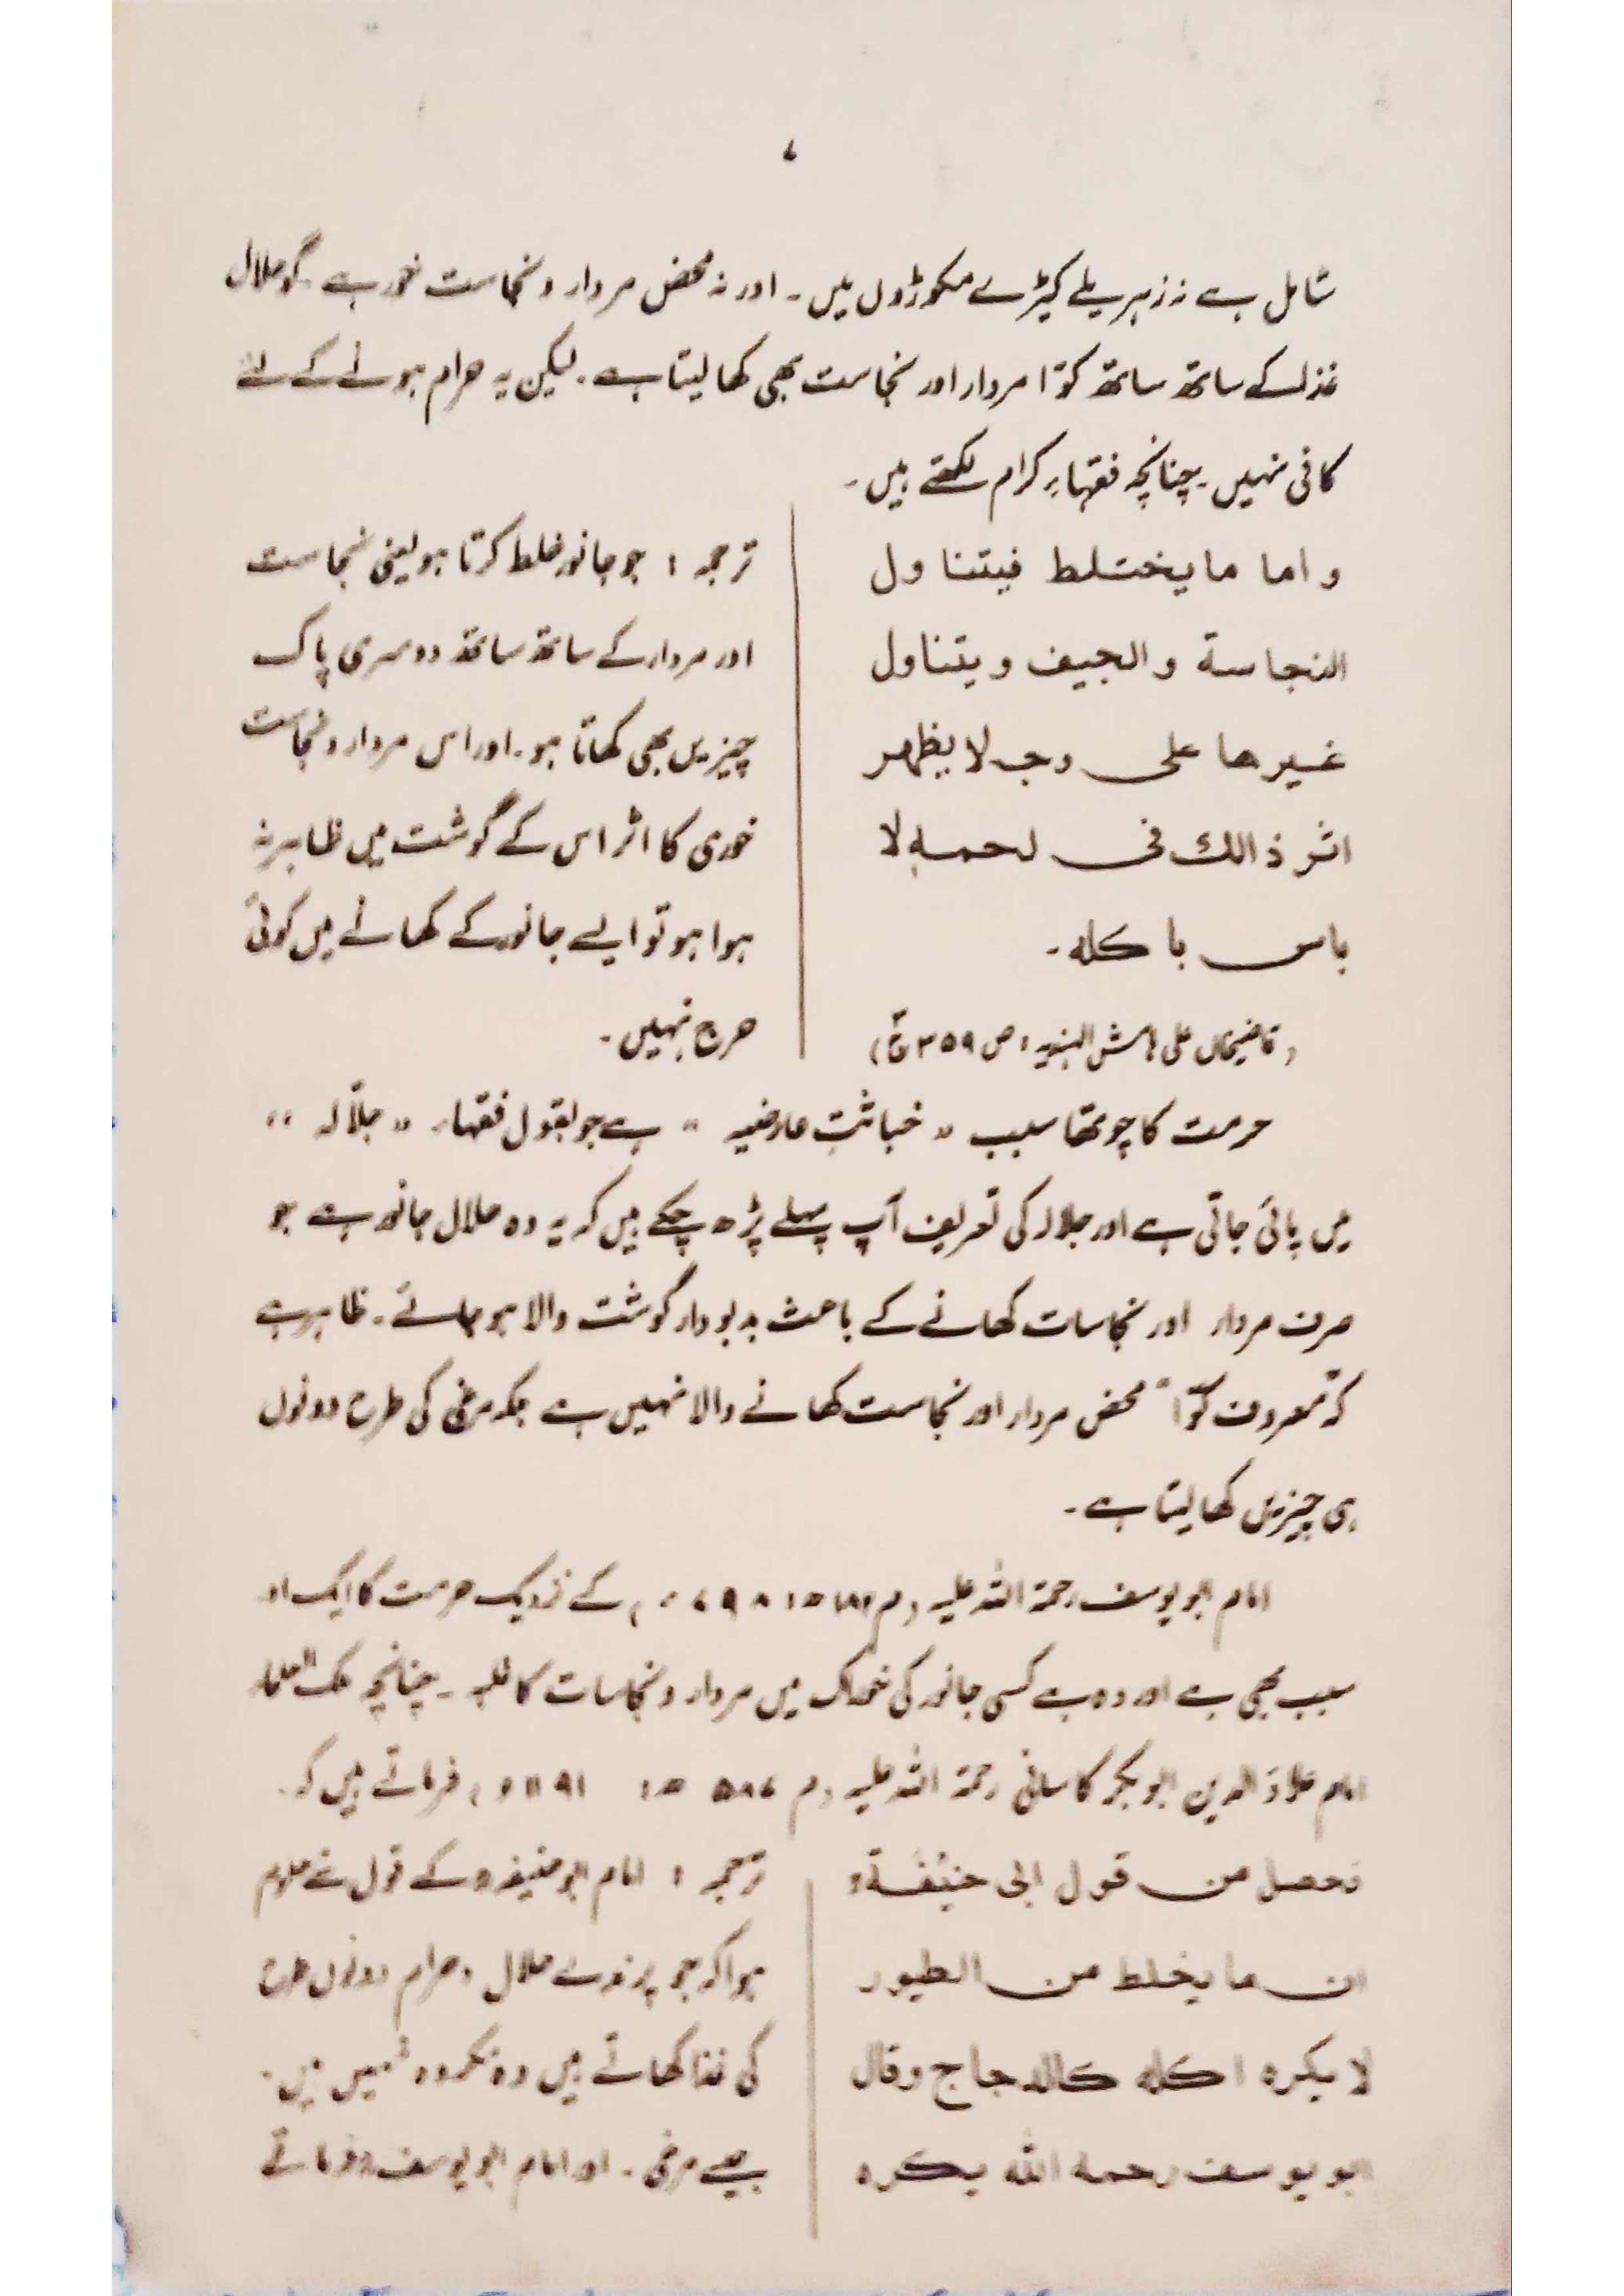 ۷
شامل ہے نہ زہریلے کیڑے مکوڑوں میں ۔ اور نہ محض مردار و نجاست خور ہے ۔ گو حلال
غذا کے ساتھ ساتھ کوّا مردار اور نجاست بھی کھا لیتا ہے ۔ لیکن یہ حرام ہونے کے لئے
کافی نہیں ۔ چنانچہ فقہاءِ کرام لکھتے ہیں ۔
و اما ما یختلط فیتناول
النجاسة و الجیف و یتناول
غیرھا علی وجہ لا یظھر
اثر ذالك فی لحمہ لا
باس باکلہ ۔
(قاضیخاں علی ہامش الہندیہ : ص ۳۵۹ ج۳)
ترجمہ : جو جانور خلط کرتا ہو یعنی نجاست
اور مردار کے ساتھ ساتھ دوسری پاک
چیزیں بھی کھاتا ہو ۔ اور اس مردار و نجاست
خوری کا اثر اس کے گوشت میں ظاہر نہ
ہوا ہو تو ایسے جانور کے کھانے میں کوئی
حرج نہیں ۔
حرمت کا چوتھا سبب " خباثتِ عارضیہ " ہے جو بقول فقہاء " جلّالہ "
میں پائی جاتی ہے اور جلالہ کی تعریف آپ پہلے پڑھ چکے ہیں کہ یہ وہ حلال جانور ہے جو
صرف مردار اور نجاسات کھانے کے باعث بدبودار گوشت والا ہو جائے ۔ ظاہر ہے
کہ "معروف کوّا" محض مردار اور نجاست کھانے والا نہیں ہے بلکہ مرغی کی طرح دونوں
ہی چیزیں کھا لیتا ہے ۔
امام ابو یوسف رحمۃ اللہ علیہ (م ۱۸۲ھ ؛ ۷۹۸ء) کے نزدیک حرمت کا ایک اور
سبب بھی ہے اور وہ ہے کسی جانور کی خوراک میں مردار و نجاسات کا غلبہ ۔ چنانچہ ملک العلماء
امام علاؤ الدین ابو بکر کاسانی رحمۃ اللہ علیہ (م ۵۸۷ھ ؛ ۱۱۹۱ء) فرماتے ہیں کہ ۔
فحصل من قول ابی حنیفۃؒ
ان ما یخلط من الطیور
لا یکرہ اکلہ کالدجاج وقال
ابو یوسف رحمہ اللہ یکرہ
ترجمہ : امام ابو حنیفہؒ کے قول سے معلوم
ہوا کہ جو پرندے حلال و حرام دونوں طرح
کی غذا کھاتے ہیں وہ مکروہ نہیں ہیں ۔
جیسے مرغی ۔ اور امام ابو یوسفؒ فرماتے